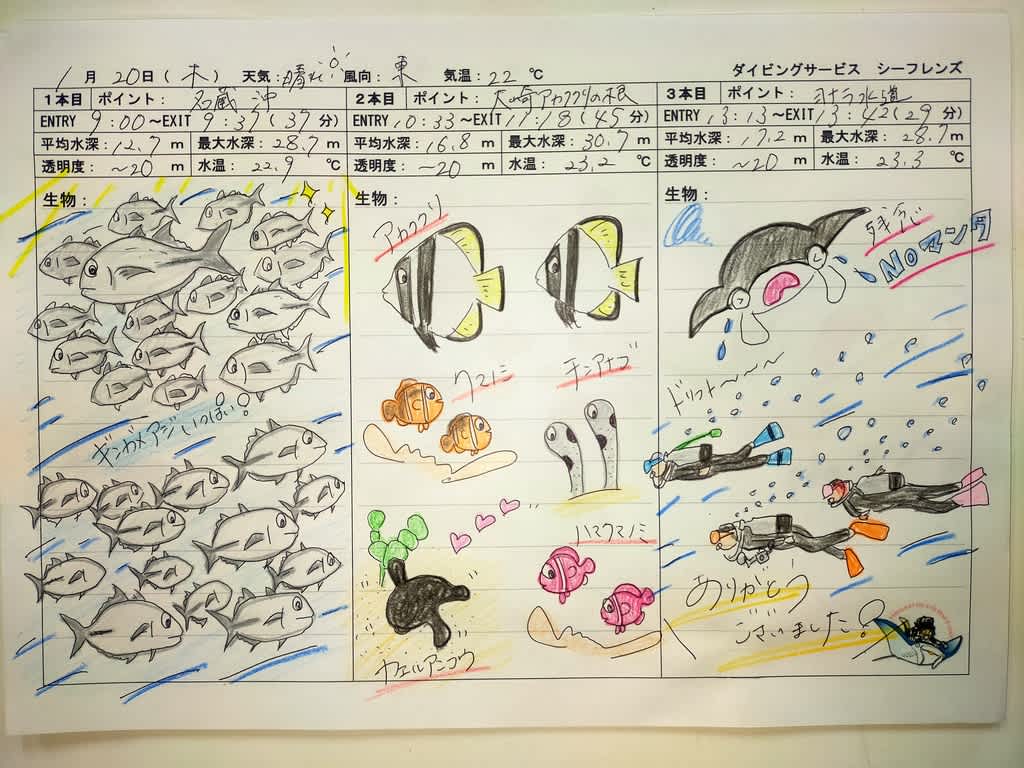 1月20日(木) 天気:晴れ 風向:東 気温:22℃ ダイビングサービス シーフレンズ
1本目 ポイント: 名蔵沖
ENTRY 9:00～EXIT 9:37(37分)
平均水深:12.7m 最大水深:28.7m
透明度:~20m 水温:22.9℃
生物:
ギンガメアジいっぱい!
2本目 ポイント: 大崎アカククリの根
ENTRY 10:33～EXIT 11:18(45分)
平均水深:16.8m 最大水深:30.7m
透明度:~20m 水温:23.2℃
生物:
アカククリ
クマノミ
チンアナゴ
ハマクマノミ
カエルアンコウ
3本目 ポイント: ヨナラ水道
ENTRY 13:13～EXIT 13:42(29分)
平均水深:17.2m 最大水深:28.7m
透明度:~20m 水温:23.3℃
生物:
残念
NOマンタ
ドリフト～～～
ありがとう
ございました!